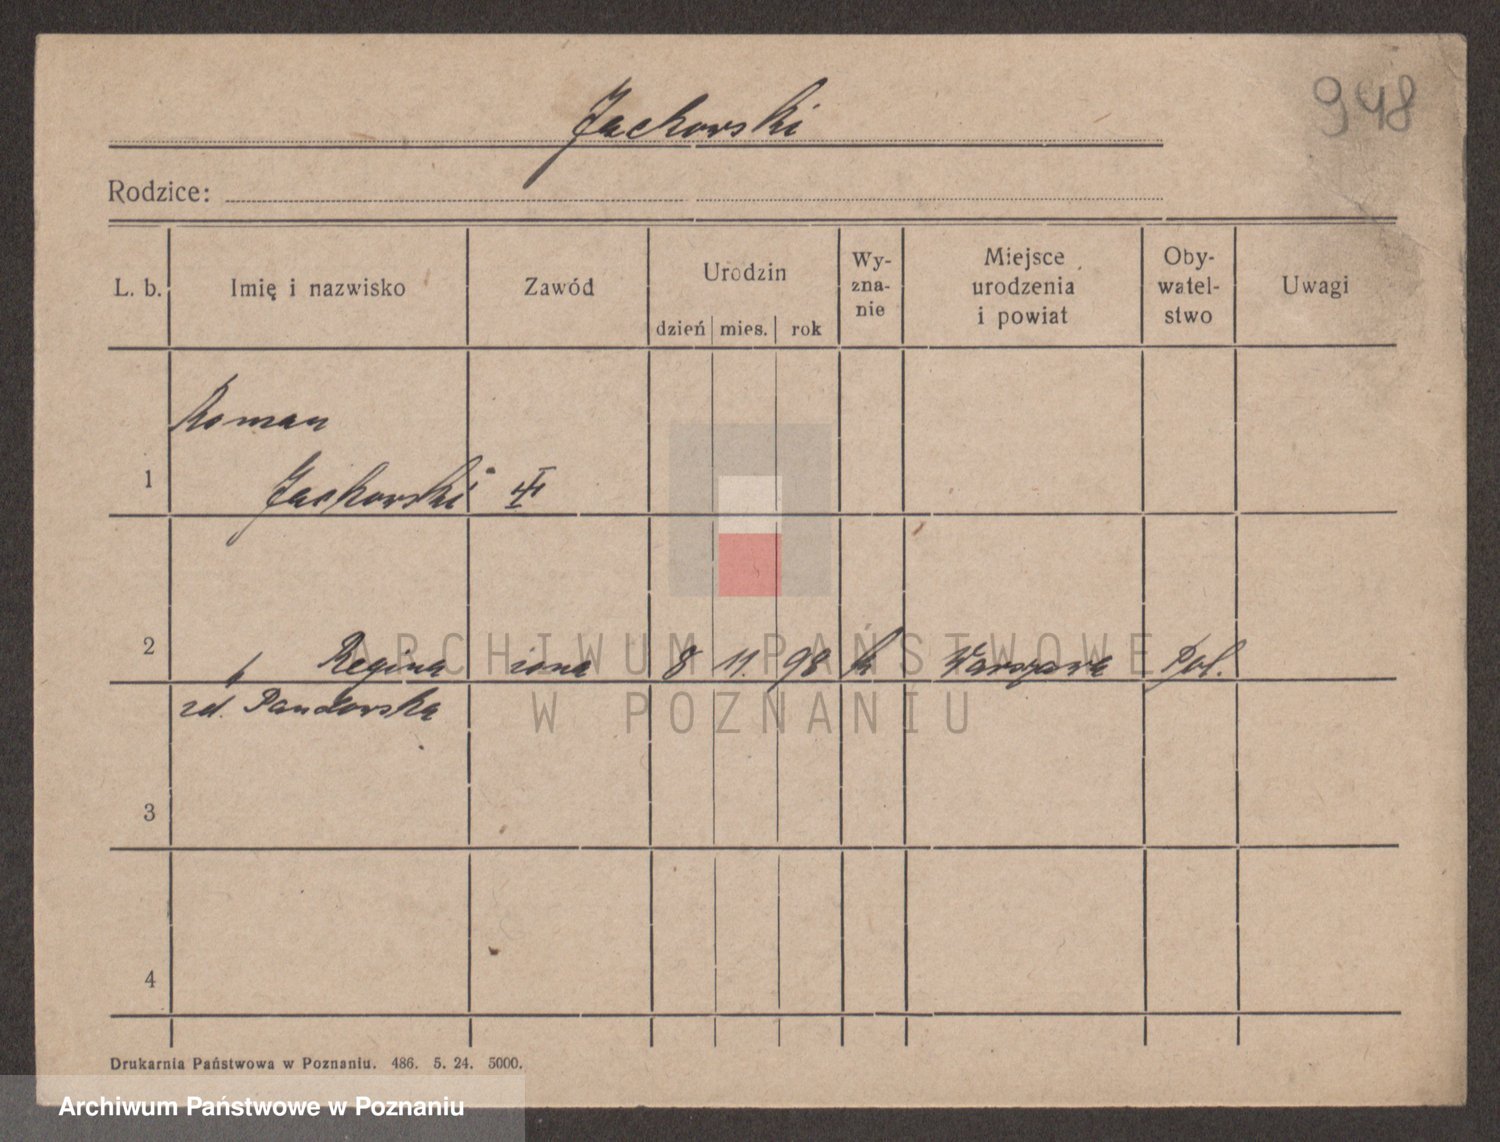 Jackowski
948
Rodzice:
L. b. Imię i nazwisko Zawód Urodzin dzień mies. rok Wy-zna-nie Miejsce urodzenia i powiat Oby-watel-stwo Uwagi
Roman
1 Jackowski
2 Regina żona 8 11. 98 k Warszawa Pol.
zd.
3
4
Drukarnia Państwowa w Poznaniu. 486. 5. 24. 5000.
ARCHIWUM PAŃSTWOWE
W POZNANIU
Archiwum Państwowe w Poznaniu